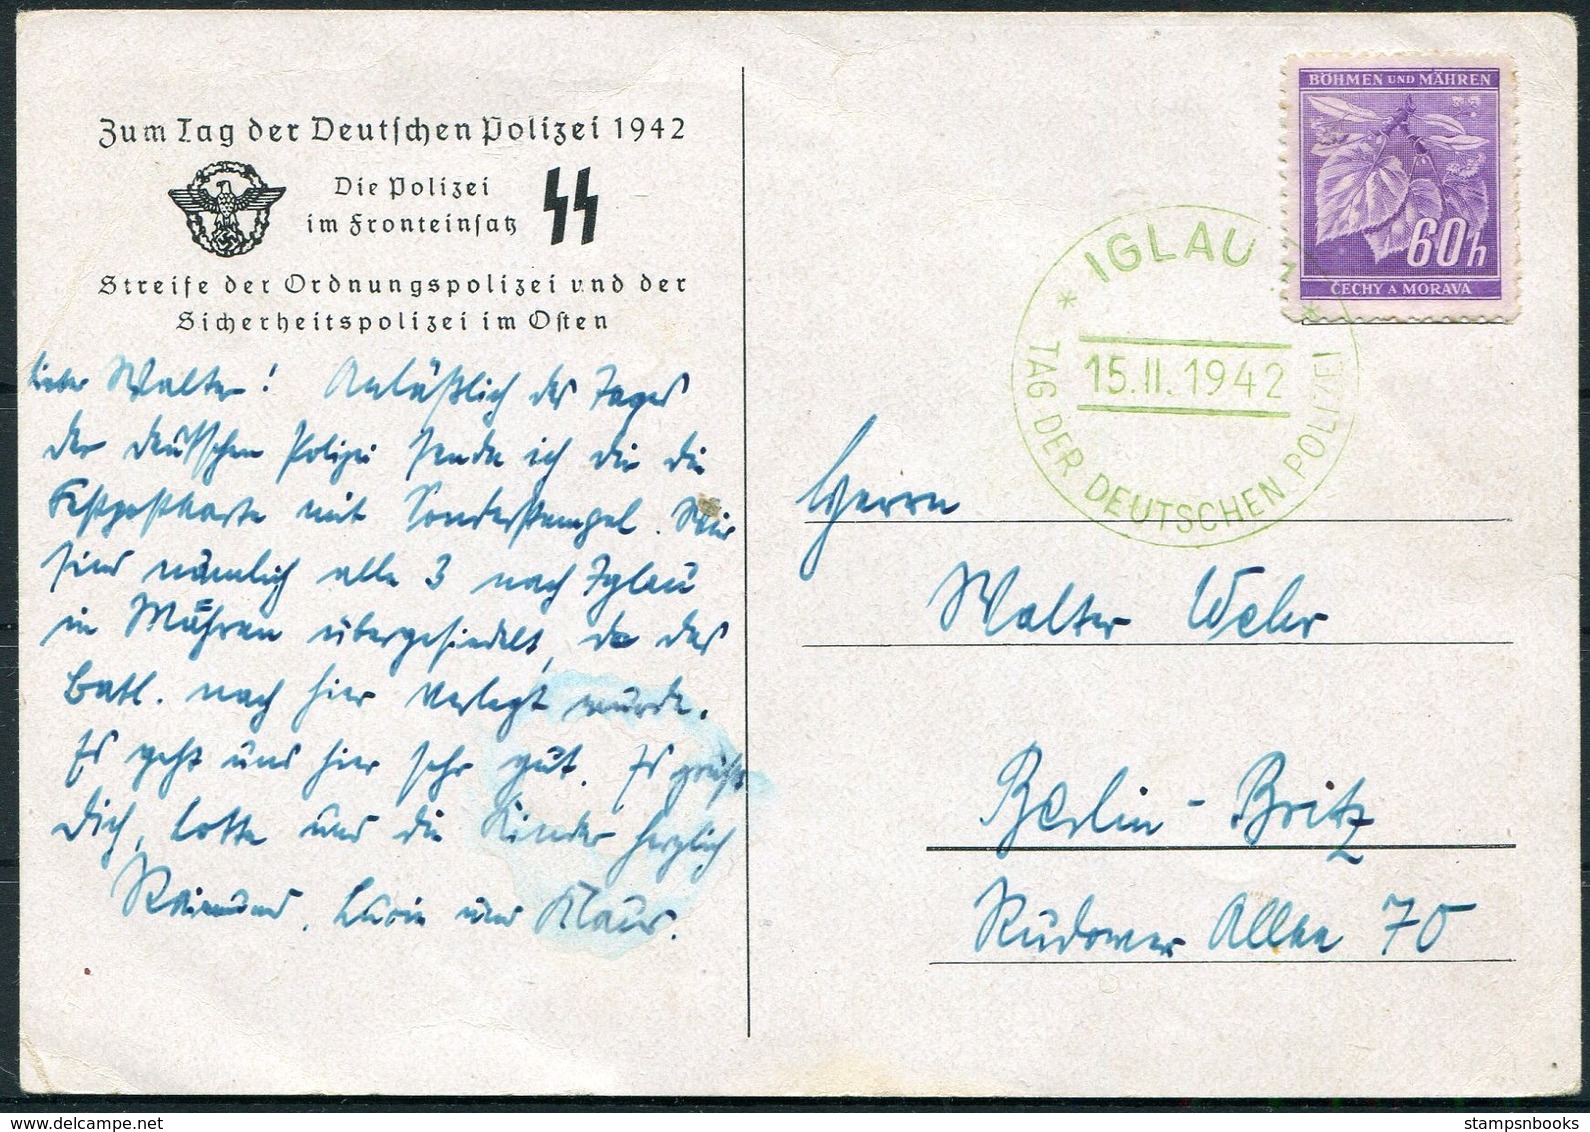 Zum Tag der Deutschen Polizei 1942
Die Polizei
im Fronteinsatz
Streife der Ordnungspolizei und der
Sicherheitspolizei im Osten
Lieber Walter! Anläßlich des Tages
der deutschen Polizei sende ich dir die
Festpostkarte mit Sonderstempel. Wir
sind nämlich alle 3 nach Iglau
in Mähren übergesiedelt, da das
Batl. nach hier verlegt wurde.
Es geht uns hier sehr gut. Es grüßt
Dich, Lotte und die Kinder herzlich
Raimund, und Klaus.
BÖHMEN UND MÄHREN
60h
ČECHY A MORAVA
* IGLAU 1 *
15.II.1942
TAG DER DEUTSCHEN POLIZEI
Herrn
Walter Wehr
Berlin-Britz
Rudower Allee 70
stampsnbooks